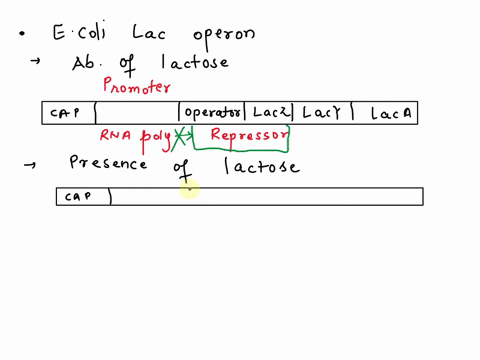 • E.Coli Lac operon
→ Ab. of lactose
Promoter
CAP operator LacZ LacY LacA
RNA poly Repressor
→ Presence of lactose
CAP